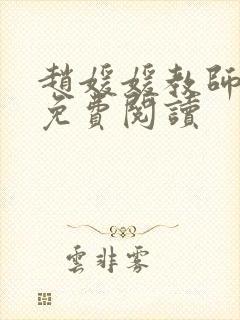 趙媛媛教師
免費閱讀
雲非霧